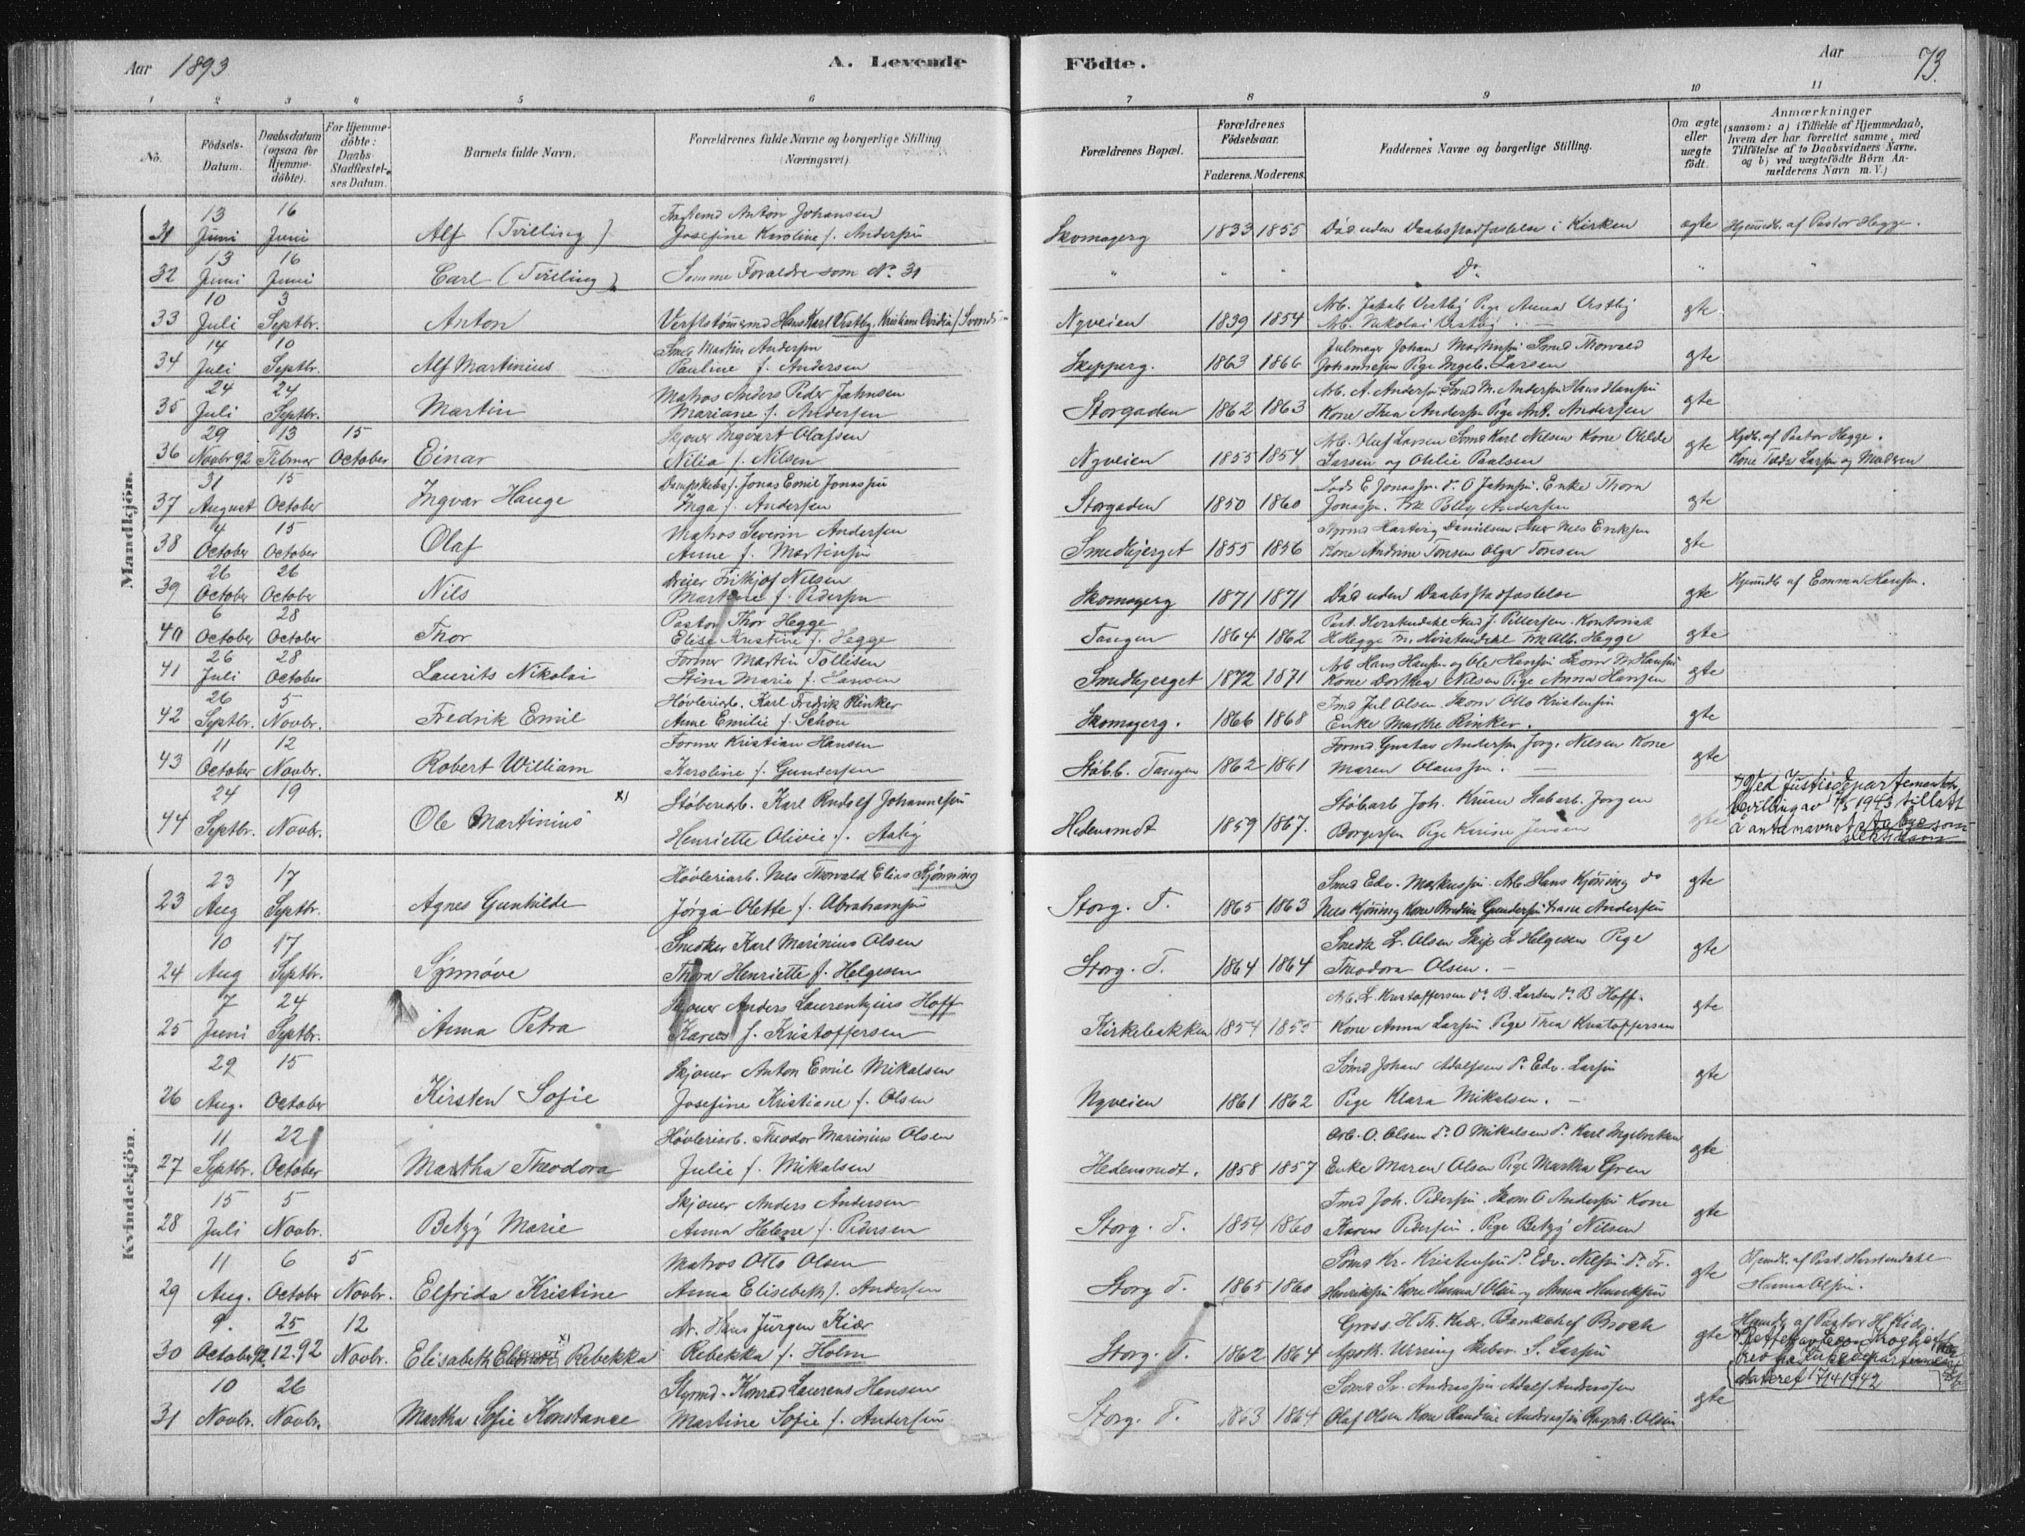 Aar 1893
A. Levende Födte.
Aar 73.
1 2 3 4 5 6 7 8 9 10 11
No.
Födsels-Datum.
Daabsdatum (ogsaa for Hjemme-döbte).
For Hjemme-döbte: Daabs-Stadfæstel-ses Datum.
Barnets fulde Navn.
Forældrenes fulde Navne og borgerlige Stilling (Næringsvei).
Forældrenes Bopæl.
Forældrenes Födselsaar.
Faderens. Moderens.
Faddernes Navne og borgerlige Stilling.
Om ægte eller uægte födt.
Anmærkninger (saasom: a) i Tilfælde af Hjemmedaab, hvem der har forrettet samme, med Tilföielse af to Daabsvidners Navne, og b) ved uægtefödte Börn An-melderens Navn m. V.)
Mandkjön.
31 13 Juni 16 Juni Alf (Tvilling) Anton Johansen
Josefine Karoline f. Andersen Skomagerg 1833 1855 Död uden Daabsstadfæstelse i Kirken ægte Hjemmdb. af Pastor Hegge.
32 13 Juni 16 Juni Carl (Tvilling) Samme Forældre som No. 31 " " " Do. " "
33 10 Juli 3 Septbr. Anton Verftstömmermd Hans Karl Vestby, Kristiane Ovidia f. Svends
Nyveien 1839 1854 Arb. Jakob Vestby Pige Anna Vestby
Arb. Nikolai Vestby gte
34 14 Juli 10 Septbr. Alf Martinius Smed Martin Andersen
Pauline f. Andersen Skipperg. 1863 1866 Johan Martinsen Smed Thorvald
Johannesen Pige Ingeb. Larsen gte
35 24 Juli 24 Septbr. Martin Matros Anders Peder Jahnsen
Mariane f. Andersen Storgaden 1862 1863 Arb. A. Andersen Smed M. Andersen Hans Hansen
Kone Thea Andersen Pige Ant. Andersen gte
36 29 Novbr 92 13 Februar 15 October Einar Skjouer Ingvart Olafsen
Nilia f. Nilsen Nyveien 1855 1854 Arb. Oluf Larsen Sömd Karl Nilsen Kone
Larsen og Paulsen gte Hjdb. af Pastor Hegge.
Kone Larsen og Madsen
37 31 August 15 October Ingvar Hauge Dampskibsf. Jonas Emil Jonassen
Inga f. Andersen Storgaden 1850 1860 Lods E. Jonassen do. O Jahnsen. Enke Thora
Jonassen. Frk Andersen gte
38 4 October 15 October Olaf Matros Severin Andersen
Anne f. Martinsen Smedbjerget 1855 1856 Styrmd Hartvig Danielsen Nils Eriksen
Kone Andrine Tonsen Olga Tonsen gte
39 26 October 26 October Nils Dreier Frithjof Nilsen
Martine f. Pedersen Skomagerg 1871 1871 Död uden Daabsstadfæstelse gte Hjemmdb. af Emma Hansen.
40 6 October 28 October Thor Pastor Thor Hegge
Elise Kristine f. Hegge Tangen 1864 1862 Past. Horstendahl Stud J. Pettersen. Kontorist
H Hegge Fru Horstendahl Frk Alb. Hegge gte
41 26 Juli 28 October Laurits Nikolai Former Martin Tollisen
Stina Marie f. Hansen Smedbjerget 1872 1871 Arb Hans Hansen og Ole Hansen Skom N. Hansen
Kone Dorthea Nilsen Pige Anna Hansen gte
42 26 Septbr. 5 Novbr. Fredrik Emil Hövleriarb. Karl Fredrik Rinker
Anne Emilie f. Schou Skomagerg. 1866 1868 Jul Olsen Skom Otto Kristensen
Enke Marthe Rinker. gte
43 11 October 12 Novbr. Robert William Former Kristian Hansen
Karoline f. Gundersen Stöbb. Tangen 1862 1861 Formd Gustav Andersen Jörg. Nilsen Kone
Maren Olaussen. gte
44 24 Septbr. 19 Novbr. Ole Martinius x) Stöberiarb. Karl Rudolf Johannesen
Henriette Olivie f. Aaby Hedensrudt 1859 1867. Stöbarb Joh. Stöbarb. Jörgen
Borgersen Pige Karine Jensen gte x) Ved Justisdepartementets
bevilling av 1/5 1943 tillatt
å anta navnet Aabye som
slektsnavn
Kvindekjön.
23 23 Aug 17 Septbr. Agnes Gunhilde Hövleriarb. Nils Thorvald Elias Kjönning
Jörga Olette f. Abrahamsen Storg. T. 1865 1863 Smed Edv. Markussen Arb. Hans Kjönning do
Nils Kjönning Kone Gundersen Andersen gte
24 10 Aug 17 Septbr. Synnöve Snedker Karl Marinius Olsen
Thora Henriette f. Helgesen Storg. T. 1864 1864 Snedk L. Olsen Skip L Helgesen Pige
Theodora Olsen. gte
25 7 Juni 24 Septbr. Anna Petra Skjouer Anders Laurentzius Hoff
Karen f. Kristoffersen Kirkebakken 1854 1855 Arb. L. Kristoffersen do. B. Larsen do. B Hoff.
Kone Anna Larsen Pige Thea Kristoffersen gte
26 29 Aug. 15 October Kirsten Sofie Skjouer Anton Emil Mikalsen
Josefine Kristiane f. Olsen Nyveien 1861 1862 Sömd Johan Adolfsen do. Edv. Larsen
Pige Klara Mikalsen. gte
27 11 Septbr. 22 October Martha Theodora Hövleriarb. Theodor Marinius Olsen
Julie f. Mikalsen Hedensrudt. 1858 1857 Arb. O. Olsen do. O Mikalsen do. Karl Ingebretsen
Enke Maren Olsen Pige Martha Gren gte
28 15 Juli 5 Novbr. Betzy Marie Skjouer Anders Andersen
Anna Helene f. Pedersen Storg. T. 1854 1860 Joh. Pedersen. Skom O Andersen Kone
Karen Pedersen. Pige Betzy Nilsen gte
29 11 Aug. 6 October 5 Novbr. Elfrida Kristine Matros Otto Olsen
Anna Elisebeth f. Andersen Storg T. 1865 1860 Sömd Kr. Kristensen do. Edv. Nilsen do. Fr.
Henriksen Kone Hanna Olsen og Anna Henriksen gte Hjemdb. af Past. Horstendahl
Hanna Olsen.
30 9. October 92 25 12.92 12 Novbr. Elisabeth x) Rebekka Dr. Hans Jürgen Kiær
Rebekka f. Holm Storg. T. 1862 1864 Gross. H. Th. Kiær. Bankchef Broch
Apoth. Skibsr. S. Larsen gte Hjemdb. af Pastor H. Kiær.
Justisdepartementet
dateret 7/4 1942
31 10 Novbr. 26 Novbr. Martha Sofie Konstance Styrmd. Konrad Laurens Hansen
Martine Sofie f. Andersen Storg. T. 1863 1864 Sömd Sv. Andreassen Adolf Andreassen
Olaf Olsen Kone Randine Andreassen Ragnh. Olsen gte